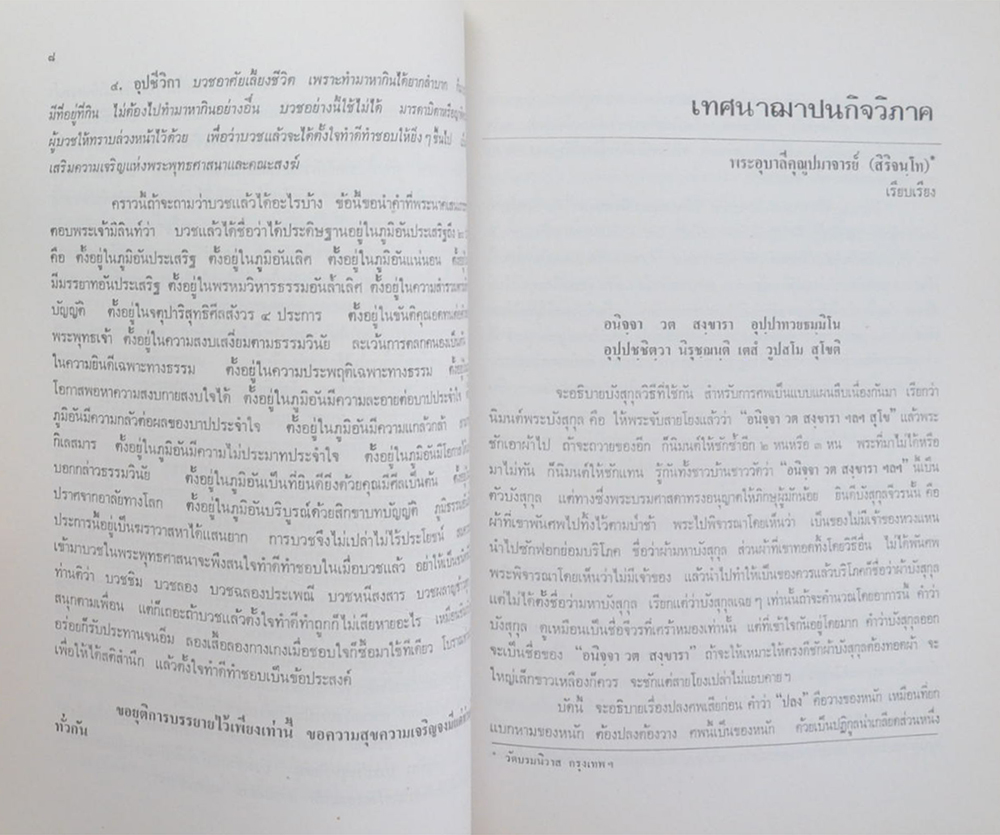 ๘
๔. อุปชีวิกา บวชอาศัยเลี้ยงชีวิต เพราะทำมาหากินได้ยากลำบาก
มีที่อยู่ที่กิน ไม่ต้องไปทำมาหากินอย่างอื่น บวชอย่างนี้ใช้ไม่ได้ มารดาบิดาหรือญาติ
ผู้บวชให้ทราบล่วงหน้าไว้ด้วย เพื่อว่าบวชแล้วจะได้ตั้งใจทำดีทำชอบให้ยิ่ง ๆ ขึ้นไป
เสริมความเจริญแห่งพระพุทธศาสนาและคณะสงฆ์
คราวนี้ถ้าจะถามว่าบวชแล้วได้อะไรบ้าง ข้อนี้ขอนำคำที่พระนาคเสนเถระ
ตอบพระเจ้ามิลินท์ว่า บวชแล้วได้ชื่อว่าได้ประดิษฐานอยู่ในภูมิอันประเสริฐถึง ๒
คือ ตั้งอยู่ในภูมิอันประเสริฐ ตั้งอยู่ในภูมิอันเลิศ ตั้งอยู่ในภูมิอันแน่นอน
มีมรรยาทอันประเสริฐ ตั้งอยู่ในพรหมวิหารธรรมอันล้ำเลิศ ตั้งอยู่ในความสำรวม
บัญญัติ ตั้งอยู่ในจตุปาริสุทธิศีลสังวร ๔ ประการ ตั้งอยู่ในขันติคุณ
พระพุทธเจ้า ตั้งอยู่ในความสงบเสงี่ยมตามธรรมวินัย ละเว้นการคลุกคลี
ในความยินดีเฉพาะทางธรรม ตั้งอยู่ในความประพฤติเฉพาะทางธรรม
โอกาสพอหาความสงบกายสงบใจได้ ตั้งอยู่ในภูมิอันมีความละอายต่อบาปประจำใจ
ภูมิอันมีความกลัวต่อผลของบาปประจำใจ ตั้งอยู่ในภูมิอันมีความแกล้วกล้า
กิเลสมาร ตั้งอยู่ในภูมิอันมีความไม่ประมาทประจำใจ ตั้งอยู่ในภูมิอันมีโอกาส
บอกกล่าวธรรมวินัย ตั้งอยู่ในภูมิอันเป็นที่ยินดียิ่งด้วยคุณมีศีลเป็นต้น
ปราศจากอาลัยทางโลก ตั้งอยู่ในภูมิอันบริบูรณ์ด้วยสิกขาบทบัญญัติ
ประการนี้อยู่เป็นฆราวาสหาได้แสนยาก การบวชจึงไม่เปล่าไม่ไร้ประโยชน์
เข้ามาบวชในพระพุทธศาสนาจะพึงสนใจทำดีทำชอบในเมื่อบวชแล้ว อย่าให้เป็น
ท่านติว่า บวชชิม บวชลอง บวชฉลองประเพณี บวชหนีสงสาร บวชผลาญข้าวสุก
สนุกตามเพื่อน แต่ก็เถอะถ้าบวชแล้วตั้งใจทำดีทำถูกก็ไม่เสียหายอะไร
อร่อยก็รับประทานจนอิ่ม ลองเสื้อลองกางเกงเมื่อชอบใจก็ซื้อมาใช้ทีเดียว
เพื่อให้ได้สติสำนึก แล้วตั้งใจทำดีทำชอบเป็นข้อประสงค์
ขอยุติการบรรยายไว้เพียงเท่านี้ ขอความสุขความเจริญจงมี
ทั่วกัน
เทศนาฌาปนกิจวิภาค
พระอุบาลีคุณูปมาจารย์ (สิริจนฺโท)*
เรียบเรียง
อนิจฺจา วต สงฺขารา อุปฺปาทวยธมฺมิโน
อุปฺปชฺชิตฺวา นิรุชฺฌนฺติ เตสํ วูปสโม สุโขติ
จะอธิบายบังสุกุลวิธีที่ใช้กัน สำหรับการศพเป็นแบบแผนสืบเนื่องกันมา เรียกว่า
นิมนต์พระบังสุกุล คือ ให้พระจับสายโยงแล้วว่า “อนิจฺจา วต สงฺขารา ฯลฯ สุโข” แล้วพระ
ชักเอาผ้าไป ถ้าจะถวายของอีก ก็นิมนต์ให้ชักซ้ำอีก ๒ หนหรือ ๓ หน พระที่มาไม่ได้หรือ
มาไม่ทัน ก็นิมนต์ให้ชักแทน รู้กันทั้งชาวบ้านชาววัดว่า “อนิจฺจา วต สงฺขารา ฯลฯ” นี้เป็น
ตัวบังสุกุล แต่ทางซึ่งพระบรมศาสดาทรงอนุญาตให้ภิกษุผู้มักน้อย ยินดีบังสุกุลจีวรนั้น คือ
ผ้าที่เขาพันศพไปทิ้งไว้ตามป่าช้า พระไปพิจารณาโดยเห็นว่า เป็นของไม่มีเจ้าของหวงแหน
นำไปซักฟอกย้อมบริโภค ชื่อว่าผ้ามหาบังสุกุล ส่วนผ้าที่เขาทอดทิ้งโดยวิธีอื่น ไม่ได้พันศพ
พระพิจารณาโดยเห็นว่าไม่มีเจ้าของ แล้วนำไปทำให้เป็นของควรแล้วบริโภคก็ชื่อว่าผ้าบังสุกุล
แต่ไม่ได้ตั้งชื่อว่ามหาบังสุกุล เรียกแต่ว่าบังสุกุลเฉย ๆ เท่านั้นถ้าจะคำนวณโดยอาการนี้ คำว่า
บังสุกุล ดูเหมือนเป็นชื่อจีวรที่เศร้าหมองเท่านั้น แต่ที่เข้าใจกันอยู่โดยมาก คำว่าบังสุกุลออก
จะเป็นชื่อของ “อนิจฺจา วต สงฺขารา” ถ้าจะให้เหมาะให้ตรงดีชักผ้าบังสุกุลต้องทอดผ้า จะ
ใหญ่เล็กขาวเหลืองก็ควร จะชักแต่สายโยงเปล่าไม่แยบคาย ฯ
บัดนี้ จะอธิบายเรื่องปลงศพเสียก่อน คำว่า “ปลง” คือวางของหนัก เหมือนที่ยก
แบกหามของหนัก ต้องปลงต้องวาง ศพนี้เป็นของหนัก ด้วยเป็นปฏิกูลน่าเกลียดส่วนหนึ่ง
* วัดบรมนิวาส กรุงเทพ ฯ